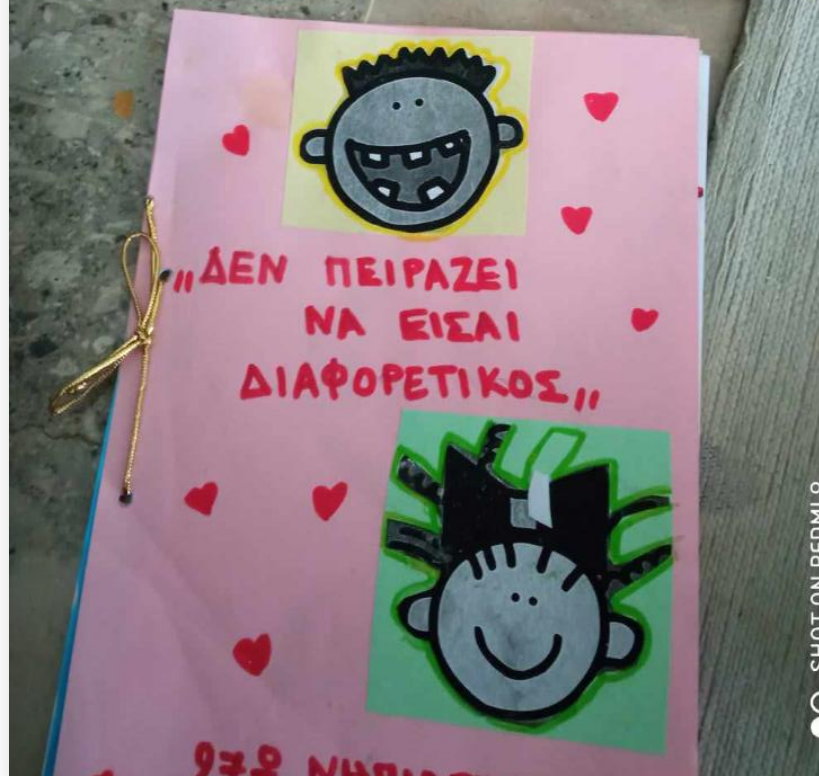 „ΔΕΝ ΠΕΙΡΑΖΕΙ
ΝΑ ΕΙΣΑΙ
ΔΙΑΦΟΡΕΤΙΚΟΣ„
SHOT ON REDMI 9